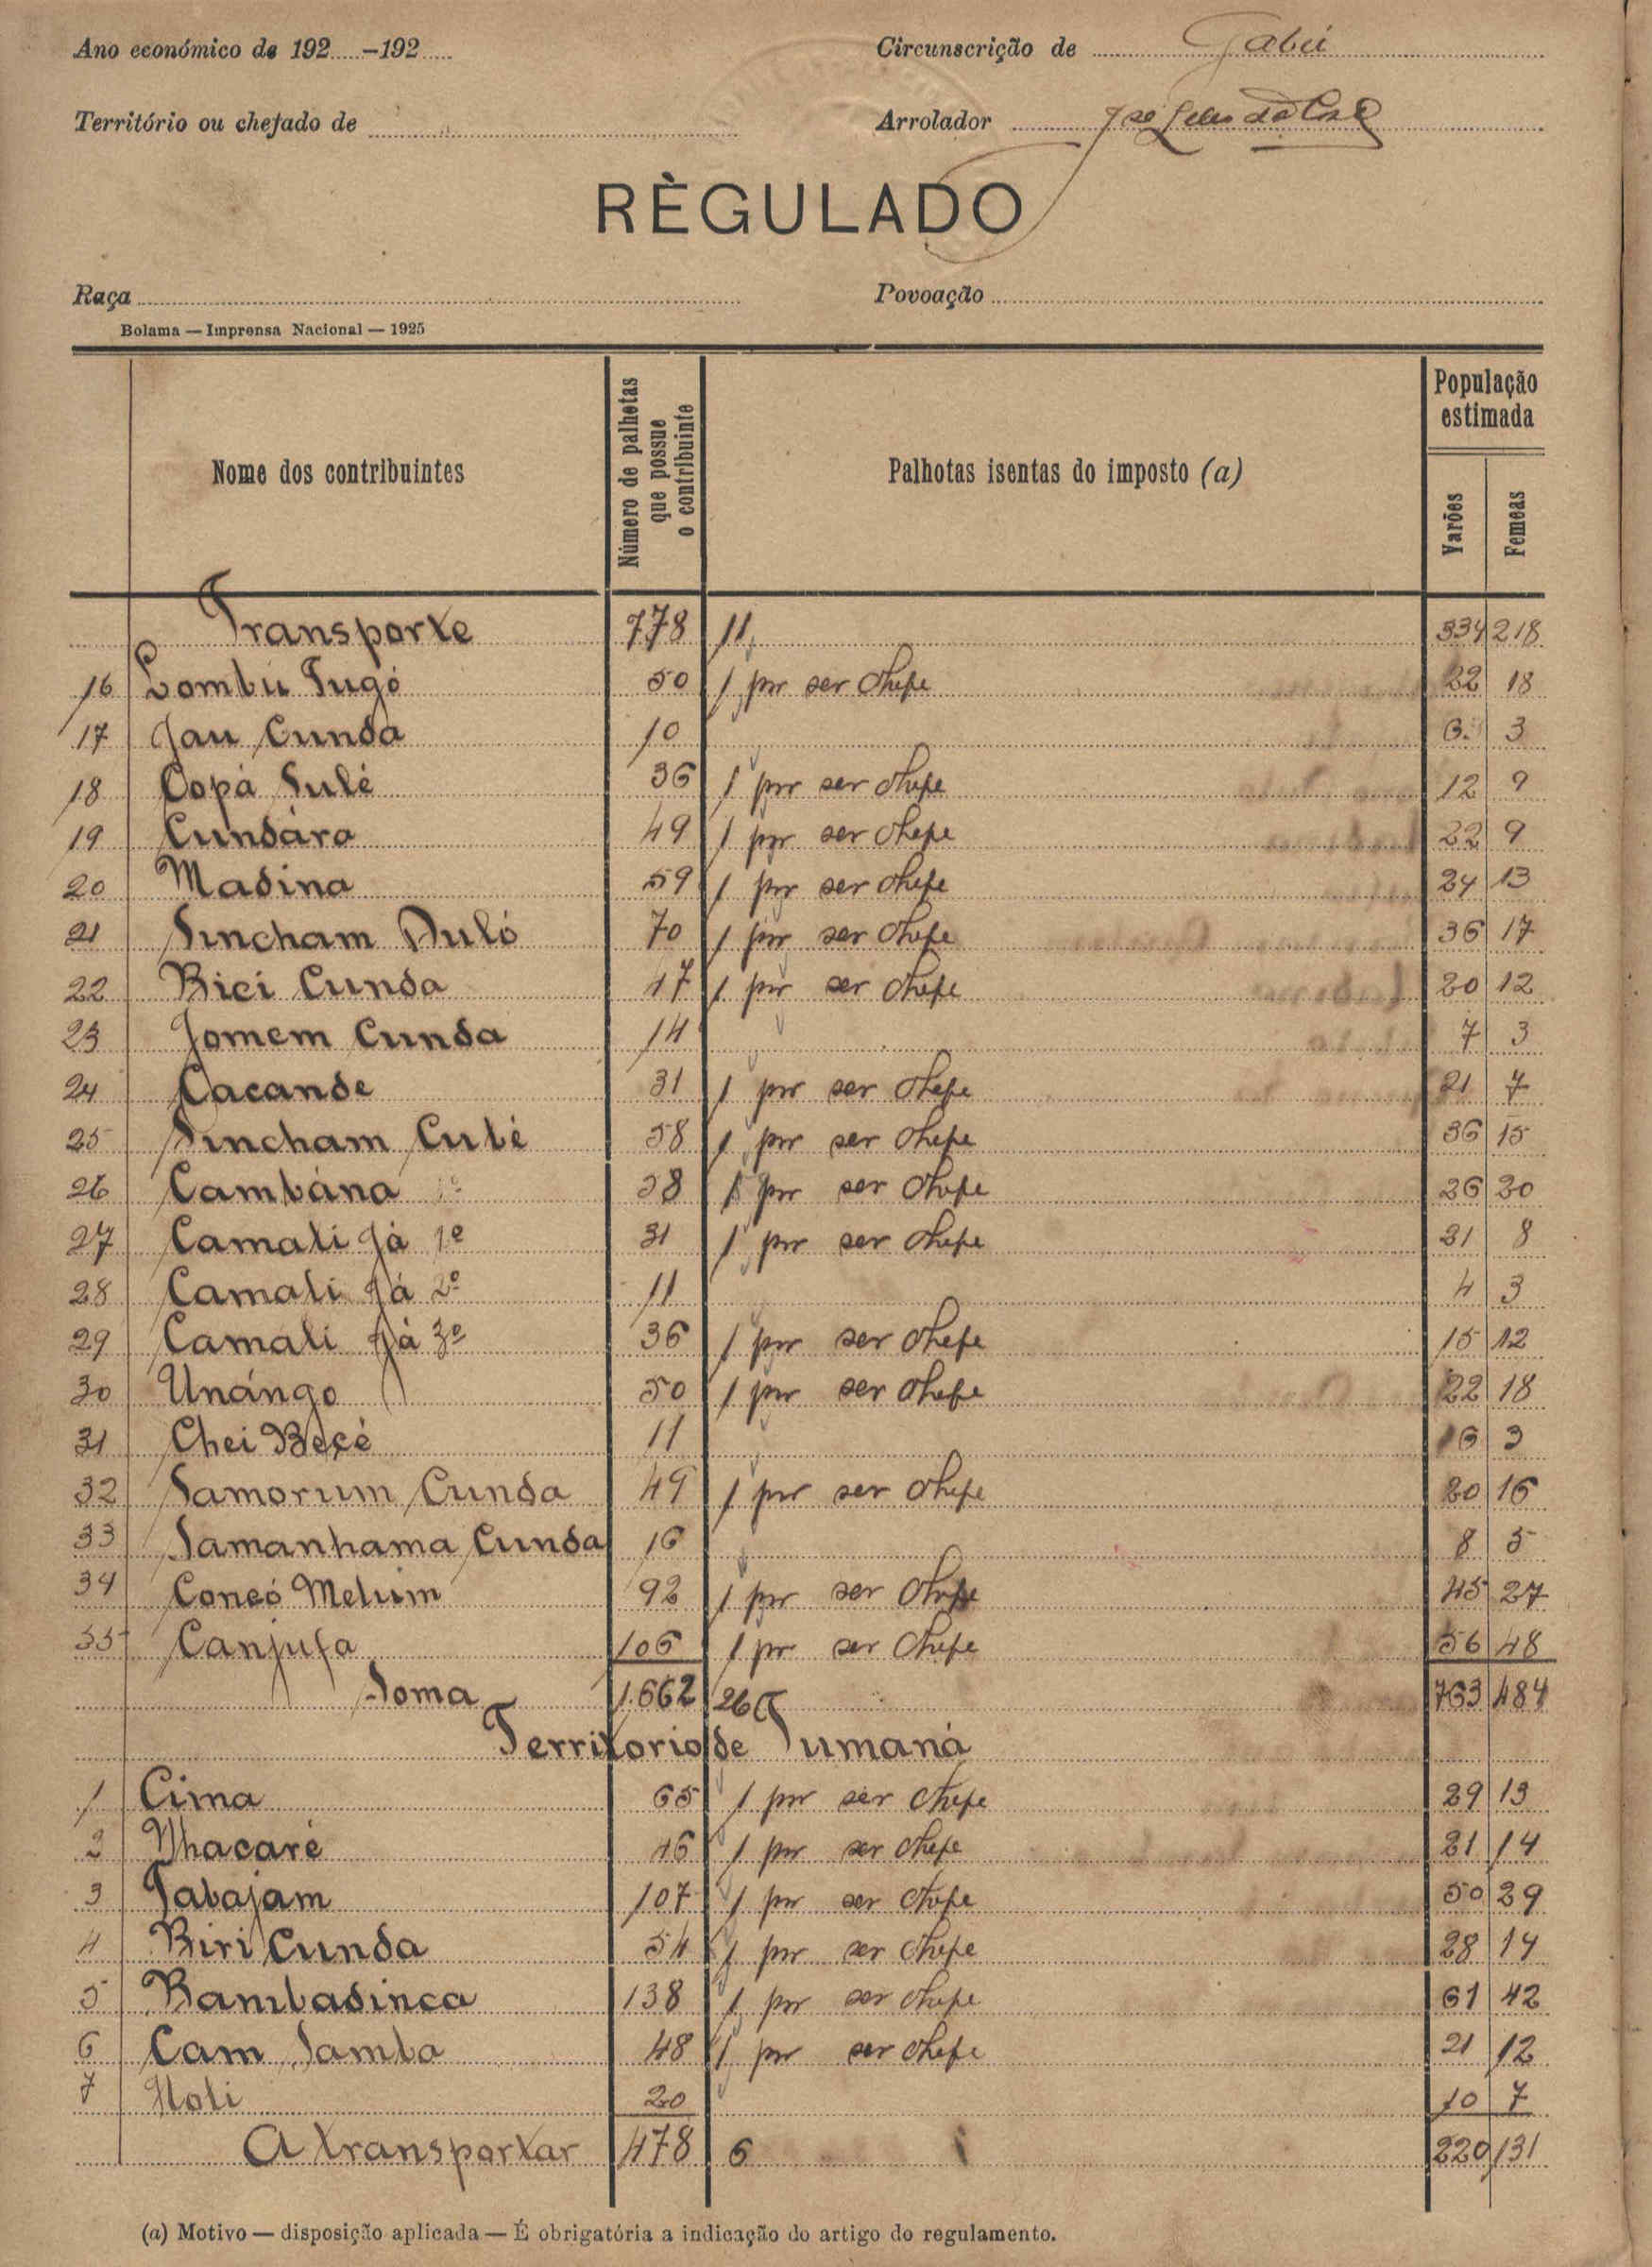 Ano económico de 192.....-192..... Circunscrição de Gabú
Território ou chefado de Arrolador
RÈGULADO
Raça Povoação
Bolama — Imprensa Nacional — 1925
Nome dos contribuintes Número de palhotas que possue o contribuinte Palhotas isentas do imposto (a) População estimada Varões Femeas
Transporte 778 11 334 218
16 Lombú Tugó 50 1 por ser chefe 22 18
17 Jau Cunda 10 6 3
18 Copá Sulé 36 1 por ser chefe 12 9
19 Cundára 49 1 por ser chefe 22 9
20 Madina 59 1 por ser chefe 24 13
21 Sincham Duló 70 1 por ser chefe 36 17
22 Bici Cunda 47 1 por ser chefe 20 12
23 Jomem Cunda 14 7 3
24 Cacande 31 1 por ser chefe 21 7
25 Sincham Cubé 58 1 por ser chefe 36 15
26 Cambána 1º 38 1 por ser chefe 26 20
27 Camali Já 1º 31 1 por ser chefe 21 8
28 Camali Já 2º 11 4 3
29 Camali Já 3º 36 1 por ser chefe 15 12
30 Unángo 50 1 por ser chefe 22 18
31 Chei Beçé 11 6 3
32 Samorum Cunda 49 1 por ser chefe 20 16
33 Samanhama Cunda 16 8 5
34 Coneó Melum 92 1 por ser chefe 45 27
35 Canjufa 106 1 por ser chefe 56 48
Soma 1.662 26 763 484
Territorio de Tumaná
1 Cima 65 1 por ser chefe 29 13
2 Nhacaré 46 1 por ser chefe 21 14
3 Tabajam 107 1 por ser chefe 50 29
4 Biri Cunda 54 1 por ser chefe 28 14
5 Bambadinca 138 1 por ser chefe 61 42
6 Cam Samba 48 1 por ser chefe 21 12
7 20 10 7
A transportar 478 6 220 131
(a) Motivo — disposição aplicada — É obrigatória a indicação do artigo do regulamento.